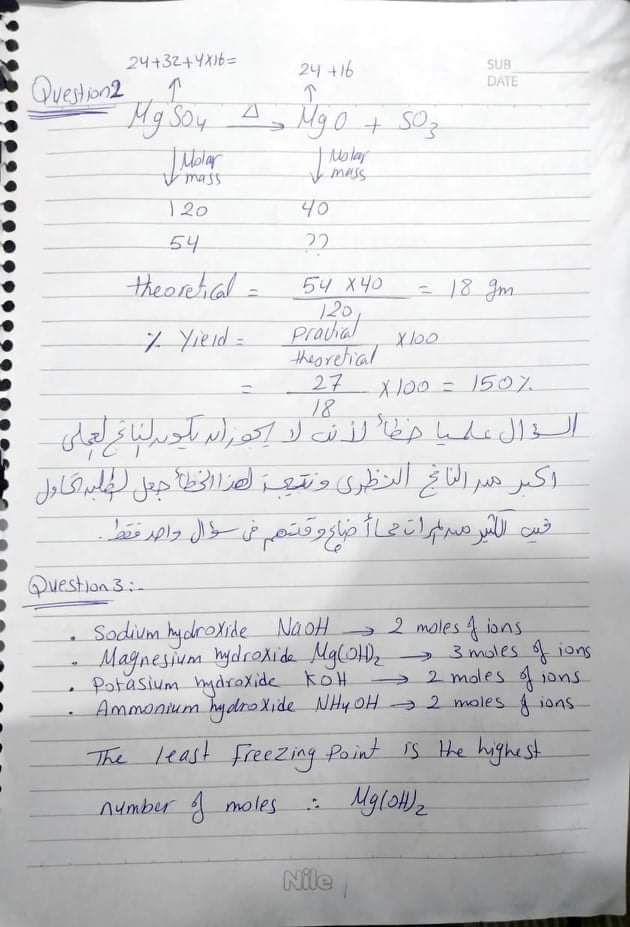 24+32+4x16=
24+16
SUB
DATE
Question2
MgSO4 Δ→ MgO + SO3
↓ Molar mass ↓ Molar mass
120 40
54 ??
theoretical = 54 x 40 / 120 = 18 gm
% Yield = / theoretical x100
= 27 / 18 x100 = 150%
السؤال علميا خطأ لأنه لا يجوز ان يكون الناتج العملى
اكبر من الناتج النظرى ونتيجة لهذا الخطأ جعل الطلبه تحاول
فيه الكثير من المرات مما أضاع وقتهم فى سؤال واحد فقط.
Question3:-
. Sodium hydroxide NaOH → 2 moles of ions
. Magnesium hydroxide Mg(OH)2 → 3 moles of ions
. Potasium hydroxide KOH → 2 moles of ions
. Ammonium hydroxide NH4OH → 2 moles of ions
The least freezing point is the highest
number of moles ∴ Mg(OH)2
Nile